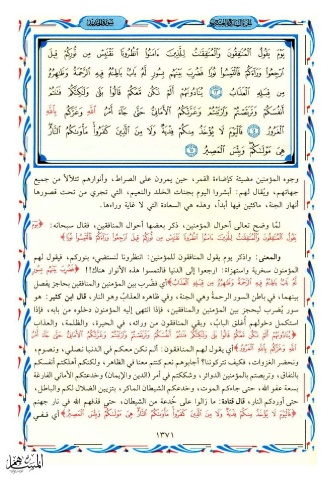 يَوْمَ يَقُولُ الْمُنَافِقُونَ وَالْمُنَافِقَاتُ لِلَّذِينَ ءَامَنُوا انظُرُونَا نَقْتَبِسْ مِن نُّورِكُمْ قِيلَ
ارْجِعُوا وَرَاءَكُمْ فَالْتَمِسُوا نُورًا فَضُرِبَ بَيْنَهُم بِسُورٍ لَّهُ بَابٌ بَاطِنُهُ فِيهِ الرَّحْمَةُ وَظَاهِرُهُ
مِن قِبَلِهِ الْعَذَابُ ۝١٣ يُنَادُونَهُمْ أَلَمْ نَكُن مَّعَكُمْ قَالُوا بَلَى وَلَكِنَّكُمْ فَتَنتُمْ
أَنفُسَكُمْ وَتَرَبَّصْتُمْ وَارْتَبْتُمْ وَغَرَّتْكُمُ الْأَمَانِيُّ حَتَّى جَاءَ أَمْرُ اللَّهِ وَغَرَّكُم بِاللَّهِ
الْغَرُورُ ۝١٤ فَالْيَوْمَ لَا يُؤْخَذُ مِنكُمْ فِدْيَةٌ وَلَا مِنَ الَّذِينَ كَفَرُوا مَأْوَاكُمُ النَّارُ
هِيَ مَوْلَاكُمْ وَبِئْسَ الْمَصِيرُ ۝١٥
وجوه المؤمنين مضيئة كإضاءة القمر، حين يمرون على الصراط، وأنوارهم تتلألأ من جميع
جهاتهم، ويُقال لهم: أبشروا اليوم بجنات الخلد والنعيم، التي تجري من تحت قصورها
أنهار الجنة، ماكثين فيها أبداً، وهذه هي السعادة التي لا غاية وراءها.
لمَّا وضح تعالى أحوال المؤمنين، ذكر بعضها أحوال المنافقين، فقال سبحانه: ﴿يَوْمَ
يَقُولُ الْمُنَافِقُونَ وَالْمُنَافِقَاتُ لِلَّذِينَ ءَامَنُوا انظُرُونَا نَقْتَبِسْ مِن نُّورِكُمْ قِيلَ ارْجِعُوا وَرَاءَكُمْ فَالْتَمِسُوا نُورًا﴾
والمعنى: واذكر يوم يقول المنافقون للمؤمنين: انتظرونا لنستضيء بنوركم، فيقول لهم
المؤمنون سخرية واستهزاءً: ارجعوا إلى الدنيا فالتمسوا هذه الأنوار هناك!! ﴿فَضُرِبَ بَيْنَهُم بِسُورٍ
لَّهُ بَابٌ بَاطِنُهُ فِيهِ الرَّحْمَةُ وَظَاهِرُهُ مِن قِبَلِهِ الْعَذَابُ﴾ أي فضُرب بين المؤمنين والمنافقين بحاجز يفصل
بينهما، في باطن السور الرحمةُ وهي الجنة، وفي ظاهره العذابُ وهو النار، قال ابن كثير: هو
سور يُضرب ليحجز بين المؤمنين والمنافقين، فإذا انتهى إليه المؤمنون دخلوه من بابه، فإذا
استكمل دخولهم أُغلق الباب، وبقي المنافقون من ورائه، في الحيرة، والظلمة، والعذاب
﴿يُنَادُونَهُمْ أَلَمْ نَكُن مَّعَكُمْ قَالُوا بَلَى وَلَكِنَّكُمْ فَتَنتُمْ أَنفُسَكُمْ وَتَرَبَّصْتُمْ وَارْتَبْتُمْ وَغَرَّتْكُمُ الْأَمَانِيُّ حَتَّى جَاءَ أَمْرُ
اللَّهِ وَغَرَّكُم بِاللَّهِ الْغَرُورُ﴾ أي يقول لهم المنافقون: ألم نكن معكم في الدنيا نصلي، ونصوم،
ونحضر الغزوات، فكيف تتركونا؟ أجابوهم نعم كنتم معنا في الظاهر، ولكنكم أهلكتم أنفسكم
بالنفاق، وتربصتم بالمؤمنين الدوائر، وشككتم في أمر (الدين والإيمان) وخدعتكم الأماني الفارغة
بسعة عفو الله، حتى جاءكم الموت، وخدعكم الشيطان الماكر، بتزيين الضلال لكم والباطل،
حتى أوردكم النار، قال قتادة: ما زالوا على خُدعة من الشيطان، حتى قذفهم الله في نار جهنم
﴿فَالْيَوْمَ لَا يُؤْخَذُ مِنكُمْ فِدْيَةٌ وَلَا مِنَ الَّذِينَ كَفَرُوا مَأْوَاكُمُ النَّارُ هِيَ مَوْلَاكُمْ وَبِئْسَ الْمَصِيرُ﴾ أي ففي
١٣٧١